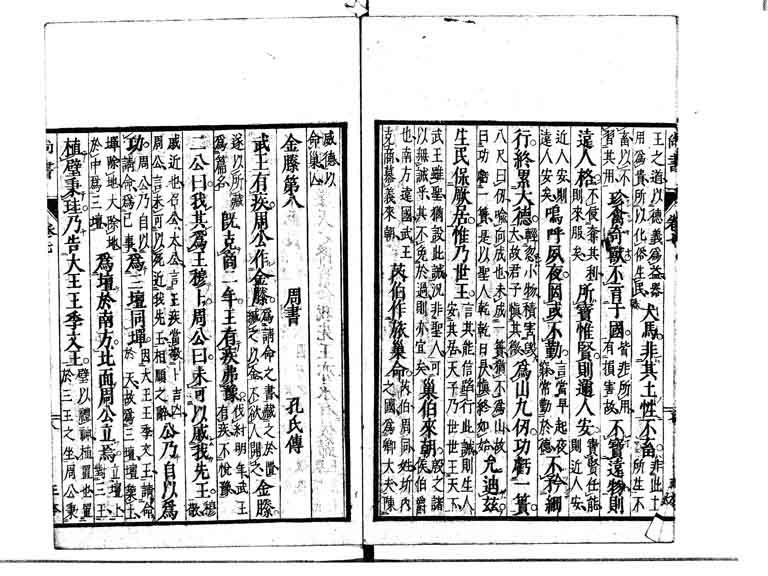 尚書
卷七
王之道以德義爲益器
用爲貴所以化俗生民
犬馬非其土性不畜
非此土
所生不
畜以不
習其用
珍禽奇獸不育于國
皆非所用
有損害故
不寶遠物則
遠人格
不侵奪其利
則來服矣
所寶惟賢則邇人安
寶賢任能
則近人安
近人安則
遠人安矣
嗚呼夙夜罔或不勤
言當早起夜
寐常勤於德
不矜細
行終累大德
輕忽小物積害毀
大故君子愼其微
爲山九仞功虧一簣
八尺曰仞喻向成也未成一簣猶不爲山故
曰功虧一簣是以聖人乾乾日昃愼終如始
允迪茲
生民保厥居惟乃世王
言其能信蹈行此誡則生人
安其居天子乃世世王天下
武王雖聖猶設此誡況非聖人可
以無誡乎其不免於過則亦宜矣
巢伯來朝
殷之諸
侯伯爵
也南方遠國武王
克商慕義來朝
芮伯作旅巢命
芮伯周同姓圻內
之國爲卿大夫陳
威德以
命巢亡
金縢第八 周書 孔氏傳
武王有疾周公作金縢
爲請命之書藏之於匱
緘之以金不欲人開之
金縢
遂以所藏
爲篇名
旣克商二年王有疾弗豫
伐紂明年武王
有疾不悅豫
二公曰我其爲王穆卜周公曰未可以戚我先王
穆
敬
戚近也召公太公言王疾當敬卜吉凶
周公言未可以死近我先王相順之辭
公乃自以爲
功
周公乃自以
請命爲己事
爲三壇同墠
因大王王季文王請命
於天故爲三壇壇築土
墠除地大除地
於中爲三壇
爲壇於南方北面周公立焉
立壇上
對三王
植璧秉珪乃告大王王季文王
璧以禮神植置也置
於三王之坐周公秉
尚書
卷七